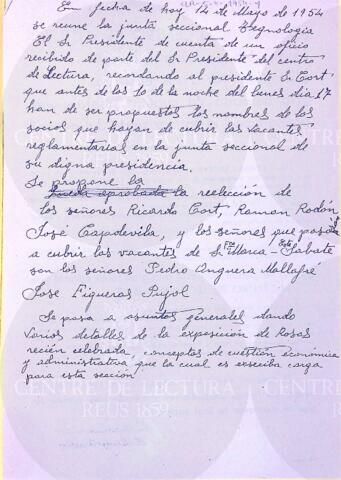 En fecha de hoy 14 de Mayo de 1954
se reune la junta seccional Tegnologia
El Sr Presidente da cuenta de un oficio
recibido de parte del Sr Presidente del centro
de Lectura, recordando al presidente Sr Cort
que antes de las 10 de la noche del lunes dia 17
han de ser propuestos los nombres de los
socios que hayan de cubrir las vacantes
reglamentarias en la junta seccional de
su digna presidencia.
Se propone la
Queda aprobada la reelección de
los señores Ricardo Cort, Ramon Rodón
José Capdevila, y los señores que pasan
a cubrir las vacantes de Sta Marca - Sabate
son los señores Pedro Anguera Mallafré
José Figueras Pujol
Se pasa a asuntos generales dando
varios detalles de la exposición de Rosas
recien celebrada, conceptos de cuestión económica
y administrativa, que la cual es carga
para esta sección
CENTRE DE LECTURA
REUS 1859